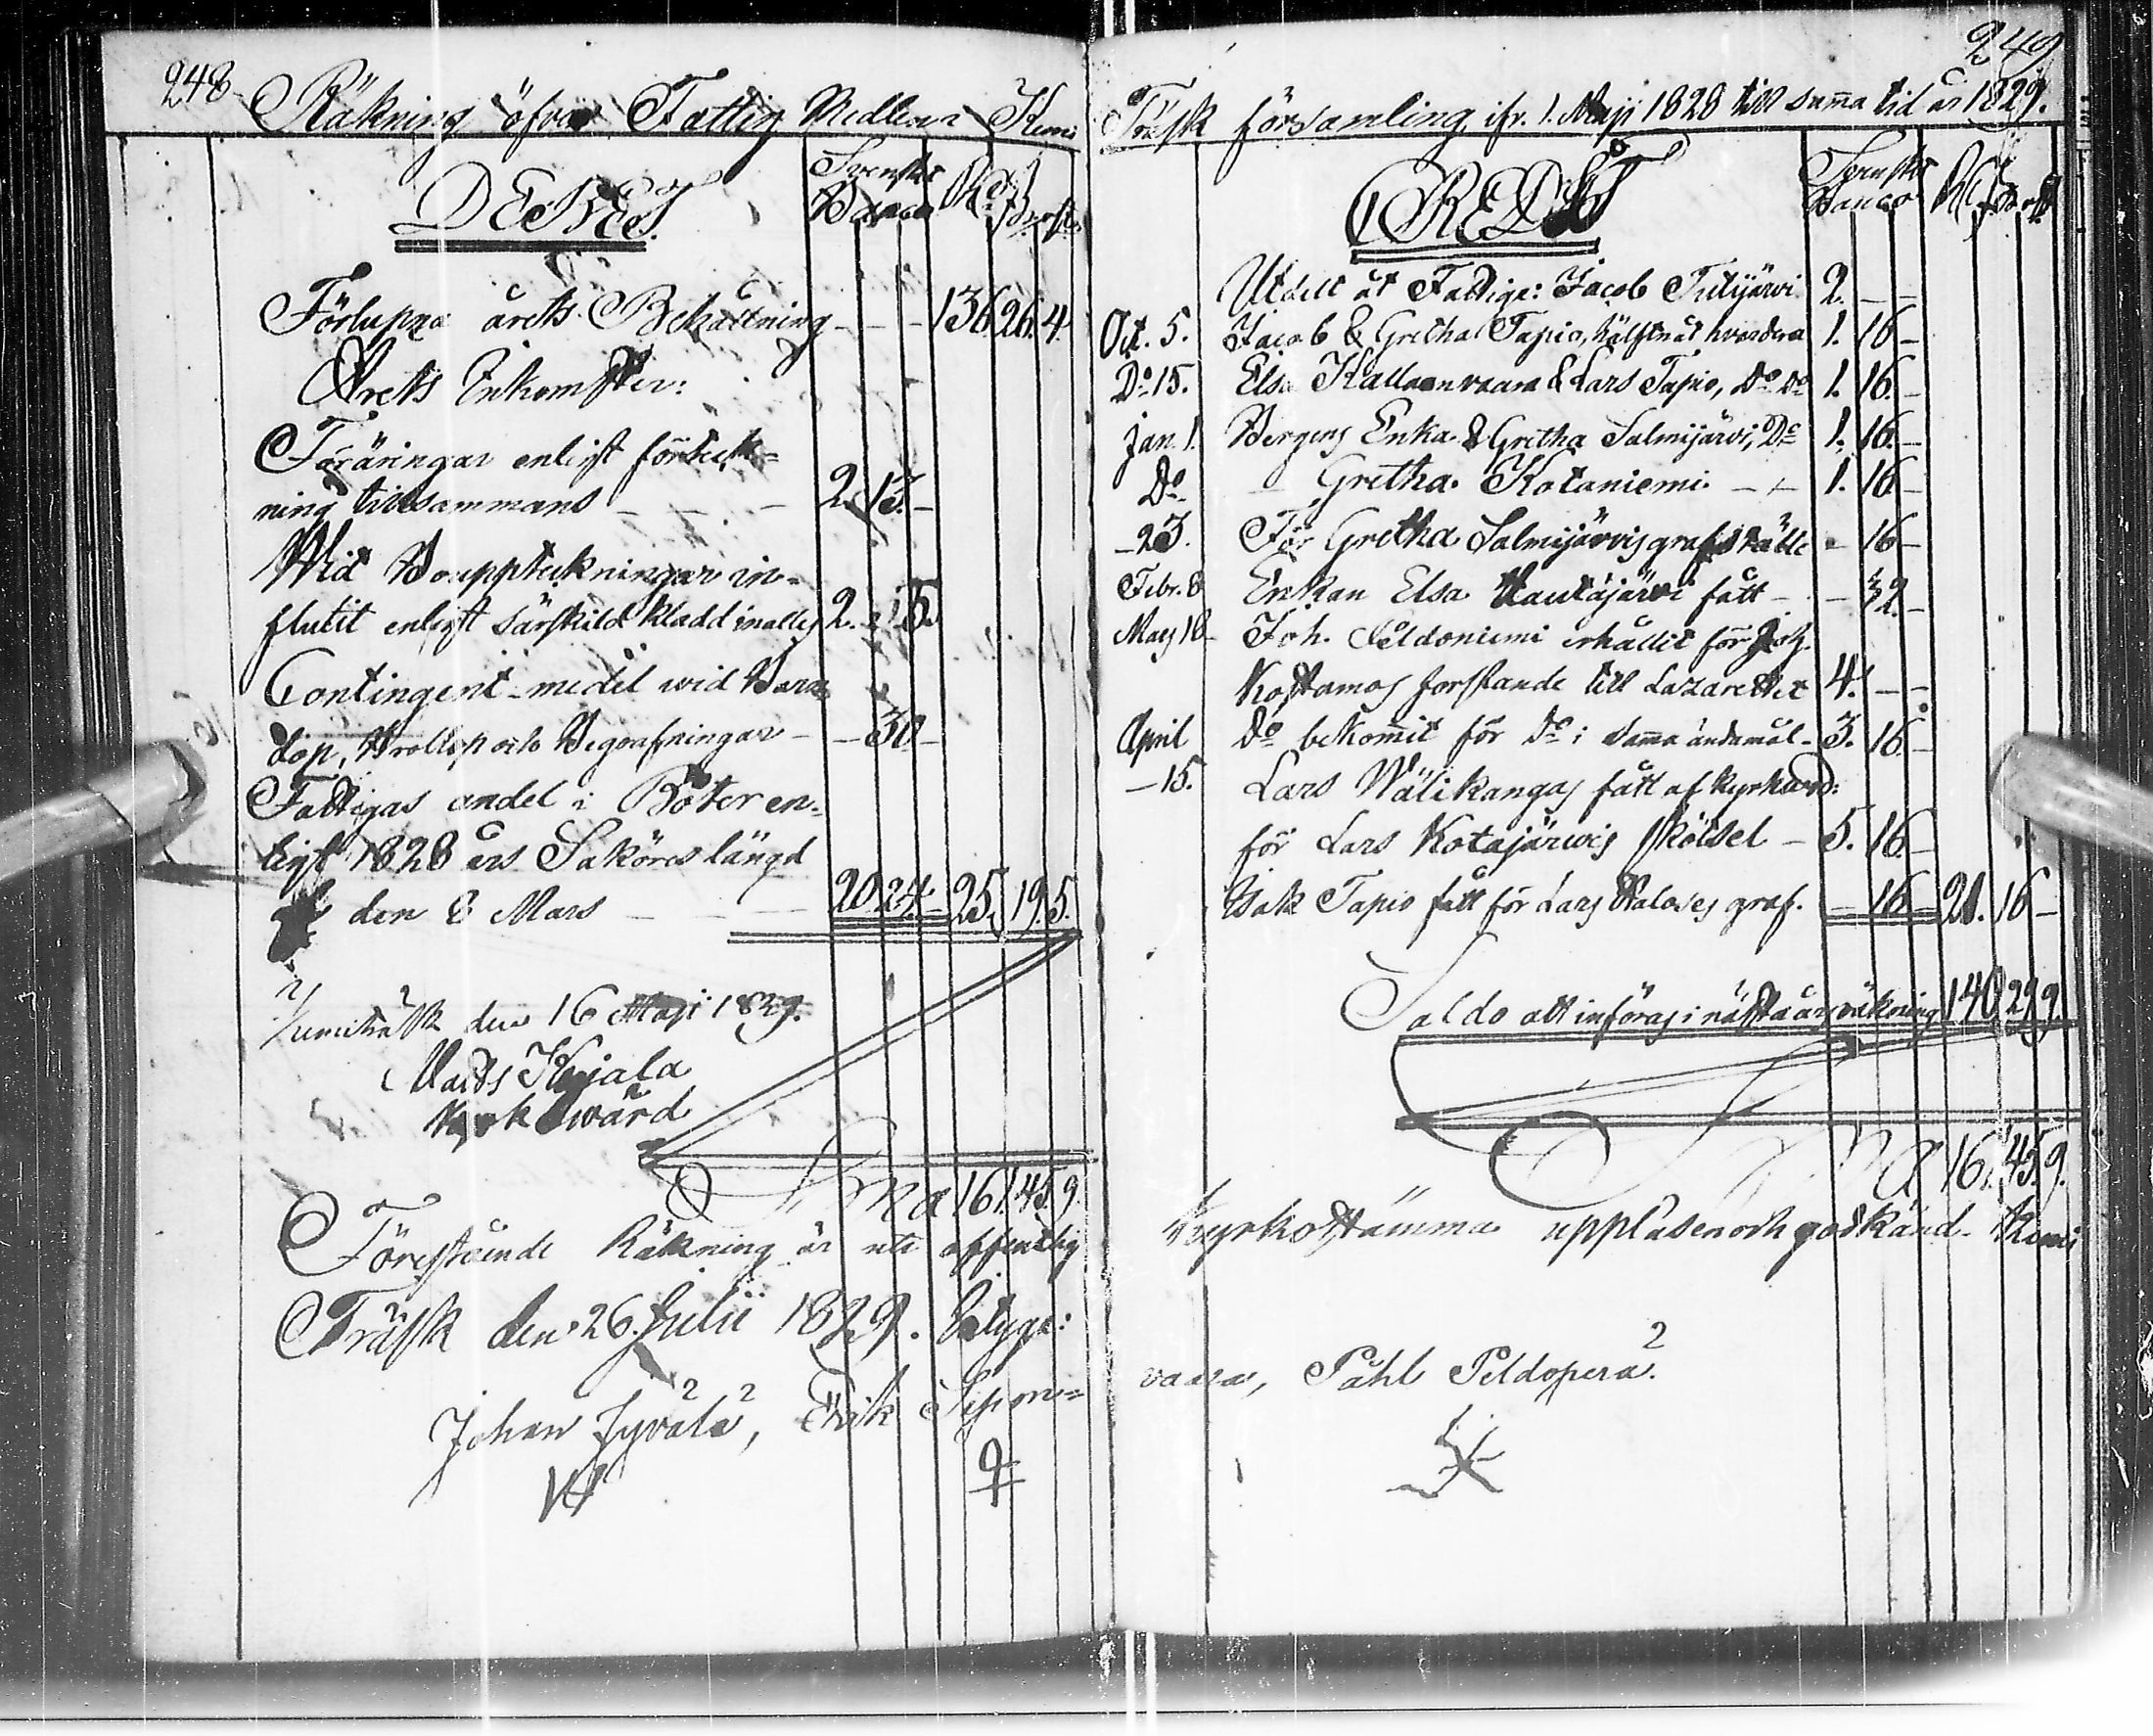 248
Räkning öfver Fattig Medlen i Kemi
DEBET.
Svenskt
Banco
Förlupna årets Behållning - - - 136. 26. 4.
Årets Inkomster:
Föräringar enligt förteck=
ning tillsammans - - - 2. 13. -
Wid Bouppteckningar in-
flutit enligt särskild kladd inalles 2. 
Contingent-medel wid Barn
dop, Bröllop och Begrafningar - - 30 -
Fattigas andel i Böter en-
ligt 1828 års Saköreslängd
den 8 Mars - - - 20. 24. - 25. 19. 5.
Kemiträsk den 16 Maji 1829.
Kyrkowärd
Summa 161. 45. 9.
Förestående Räkning är uti offentlig
Träsk den 26. Julii 1829. Betyga:
Johan Jyrälä, Erik Sipon=
249
Träsk församling ifr. 1. Maji 1828 till samma tid år 1829.
CREDIT
Svenskt
Banco
Utdelt åt Fattige: Jacob Tulijärvi. 2. - -
Oct. 5. Jacob & Gretha Tapio, hälften åt hvardera 1. 16 -
Do 15. Elsa Kallaanvaara & Lars Tapio, Do Do 1. 16. -
Jan. 1. Bergens Enka & Gretha Salmijärvi, Do 1. 16. -
Do - Gretha Kotaniemi - - 1. 16 -
- 23. För Gretha Salmijärvis grafställe - 16 -
Febr. 8 Enkan Elsa Hautajärvi fått - - 32. -
Mars 18 Joh. Peldoniemi erhållit för Joh.
Kostamos forslande till Lazarettet 4. - -
April Do bekommit för Do i samma ändamål - 3. 16 -
- 15. Lars Wälikangas fått af kyrkovärd:
för Lars Kotajärwis skötsel - 5. 16. -
Isak Tapio fått för Lars graf. - 16 - 21. 16 -
Saldo att införas i nästa års räkning 140. 29. 9.
Summa 161. 45. 9.
Kyrkostämma uppläsen och godkänd. Kemi
vaara, Påhl Peldoperä.